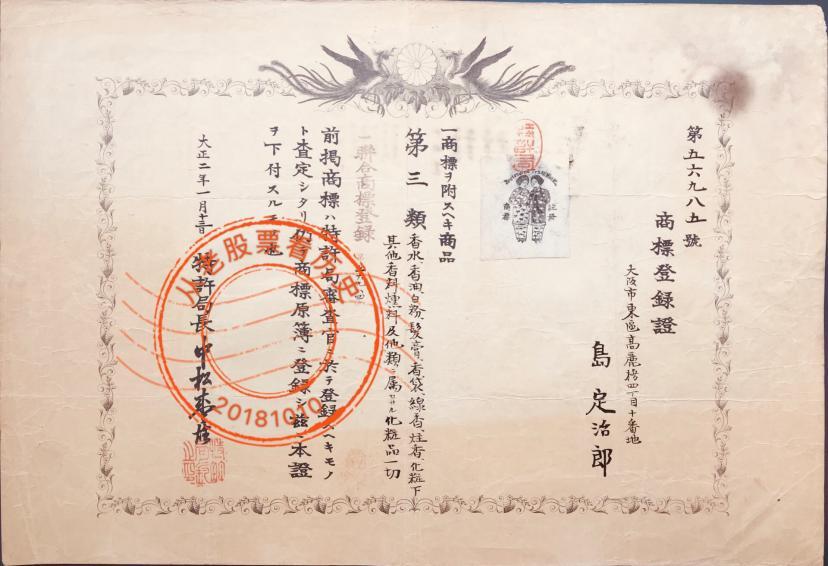 第五六九八五號
商標登録證
大阪市東區高麗橋四丁目十番地
島定治郎
登録
商標
一商標ヲ附スヘキ商品
第三類
香水、香油、白粉、髪膏、香袋、線香、炷香、化粧下
其他香料燻料及他類ニ属セサル化粧品一切
一聯合商標登録
前掲商標ハ特許局審査官ニ於テ登録スヘキモノ
ト査定シタリ仍テ商標原簿ニ登録シ茲ニ本證
ヲ下付スルモノ也
大正二年一月十三日
特許局長中松盛雄
从老股票看历史
20181010